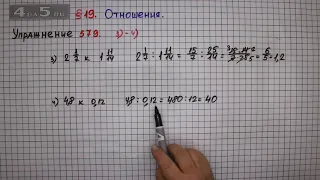 §19. Отношения.
Упражнение 579. 3)-4)
3) 2 1/7 к 1 11/14 2 1/7 : 1 11/14 = 15/7 : 25/14 = 15·14/7·25 = 6/5 = 1,2
4) 4,8 к 0,12 4,8 : 0,12 = 480 : 12 = 40